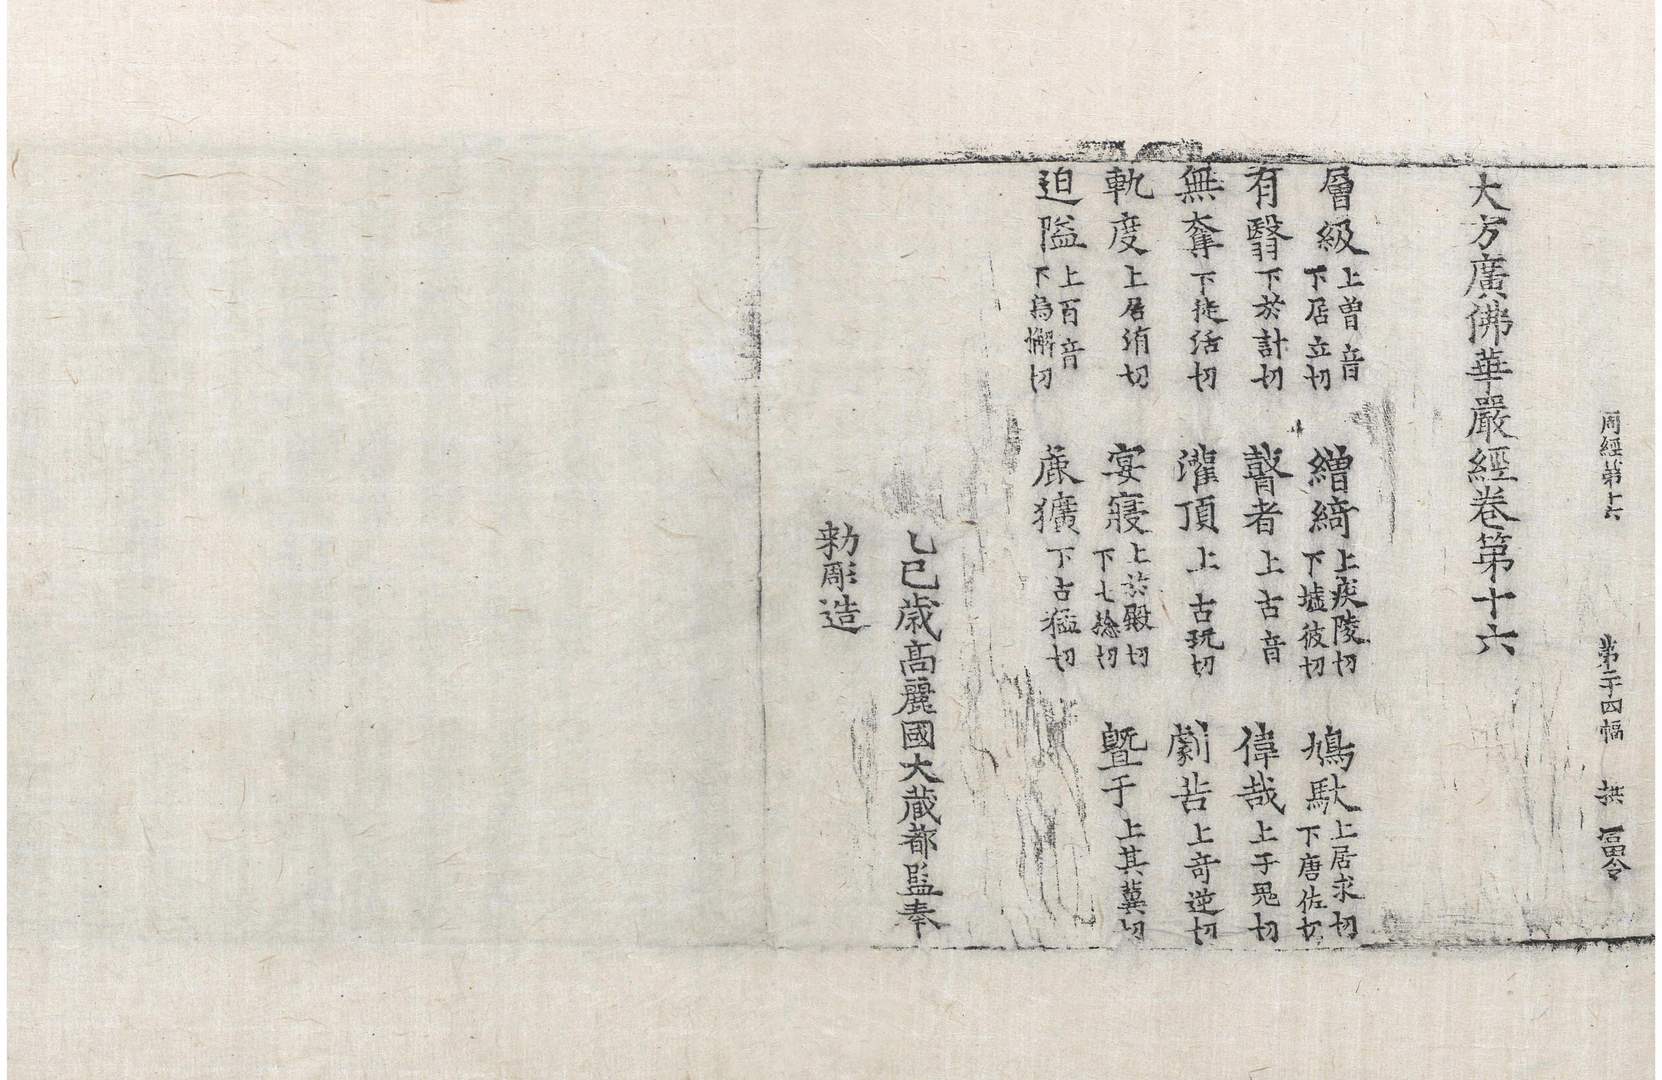 周經第十六 第二十四幅 拱 富令
大方廣佛華嚴經卷第十六
層級 上曽音下居立切 繒綺 上疾陵切下墟彼切 鳩馱 上居求切下唐佐切
有翳 下於計切 瞽者 上古音 偉哉 上于鬼切
無奪 下徒活切 灌頂 上古玩切 劇苦 上奇逆切
軌度 上居洧切 宴寢 上於殿切下七稔切 曁于 上其冀切
迫隘 上百音下烏懈切 麁獷 下古猛切
乙巳歲高麗國大藏都監奉
勑彫造